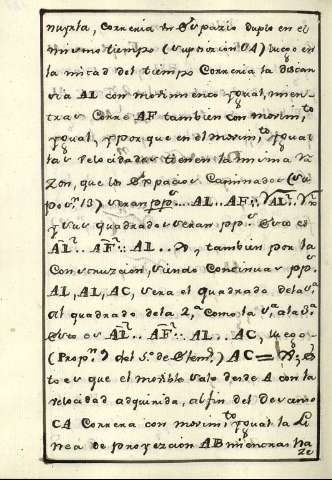 nuysla, Correria un Espazio duplo en el
mismo tiempo (Suposicion 0A) luego en
la mitad del tiempo Correria la distan
cia AL con movimiento ygual, mien-
tras Corre AF tambien con movim.to
ygual, y por que en el movim.to ygual
las velocidades tienen la misma Ra
zon, que los Espacios Caminados (Su
pos.n 13) seran pp.s .. AL .. AF::
y sus quadrados seran pp.s Esto es
AL.. AF:: AL .. , tambien por la
Construzion, siendo Continuas pp.s
AL, AL, AC, sera el quadrado de la 1.a
al quadrado de la 2.a Como la 1.a a la 3.a
Esto es AL.. AF:: AL .. AC, luego
(Prop.n 7 del 5.o de Elem.) AC = ; Es
to es que el movible sale desde A con la
velocidad adquirida, al fin del descenso
CA Correra con movim.to ygual la Li
nea de proyeccion AB mientras ha
ze